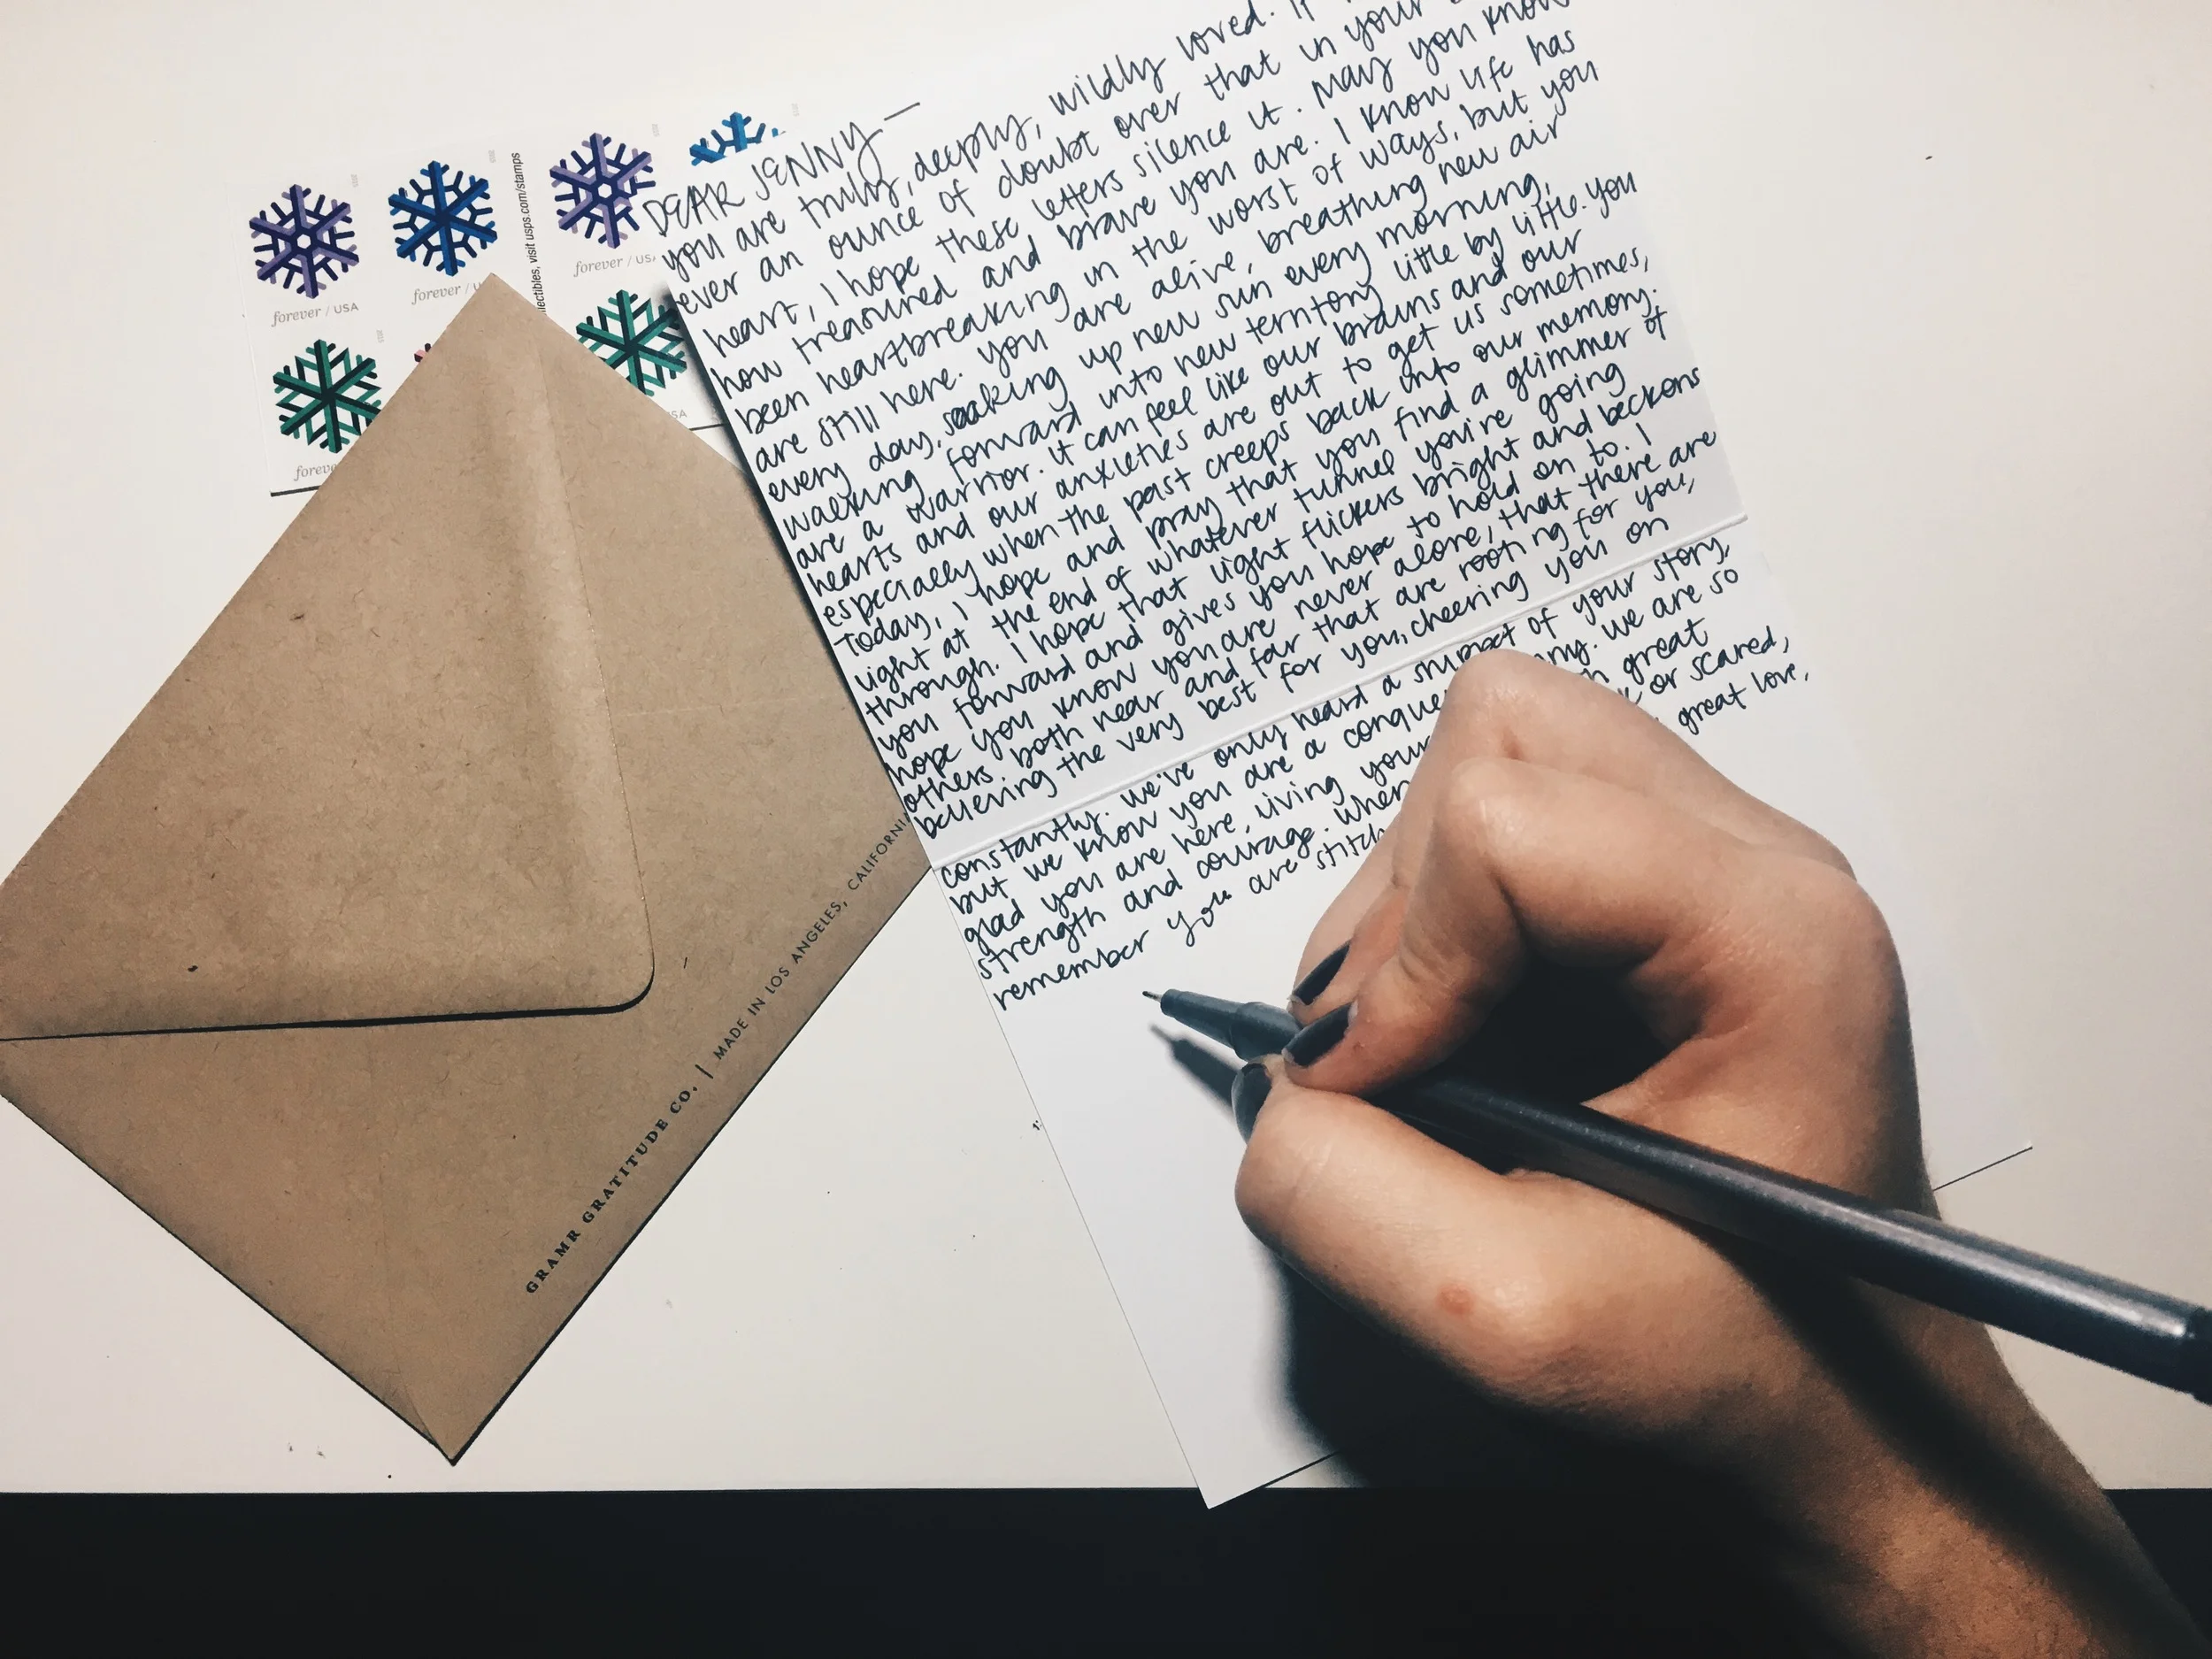 DEAR JENNY—
you are truly, deeply, wildly loved. If
ever an ounce of doubt over that in your
heart, I hope these letters silence it. May you know
how treasured and brave you are. I know life has
been heartbreaking in the worst of ways, but you
are still here. you are alive, breathing new air
every day, soaking up new sun every morning,
walking forward into new territory little by little. you
are a warrior. It can feel like our brains and our
hearts and our anxieties are out to get us sometimes,
especially when the past creeps back into our memory.
Today, I hope and pray that you find a glimmer of
light at the end of whatever tunnel you're going
through. I hope that light flickers bright and beckons
you forward and gives you hope to hold on to. I
hope you know you are never alone, that there are
others both near and far that are rooting for you,
believing the very best for you, cheering you on
constantly. We've only heard a snippet of your story,
but we know you are a conque ny. we are so
glad you are here, living your great
strength and courage. When or scared,
remember you are stitch great love,
forever / USA
forever / U
forever / USA
forev
USA
lectibles, visit usps.com/stamps
GRAMR GRATITUDE CO. | MADE IN LOS ANGELES, CALIFORNIA